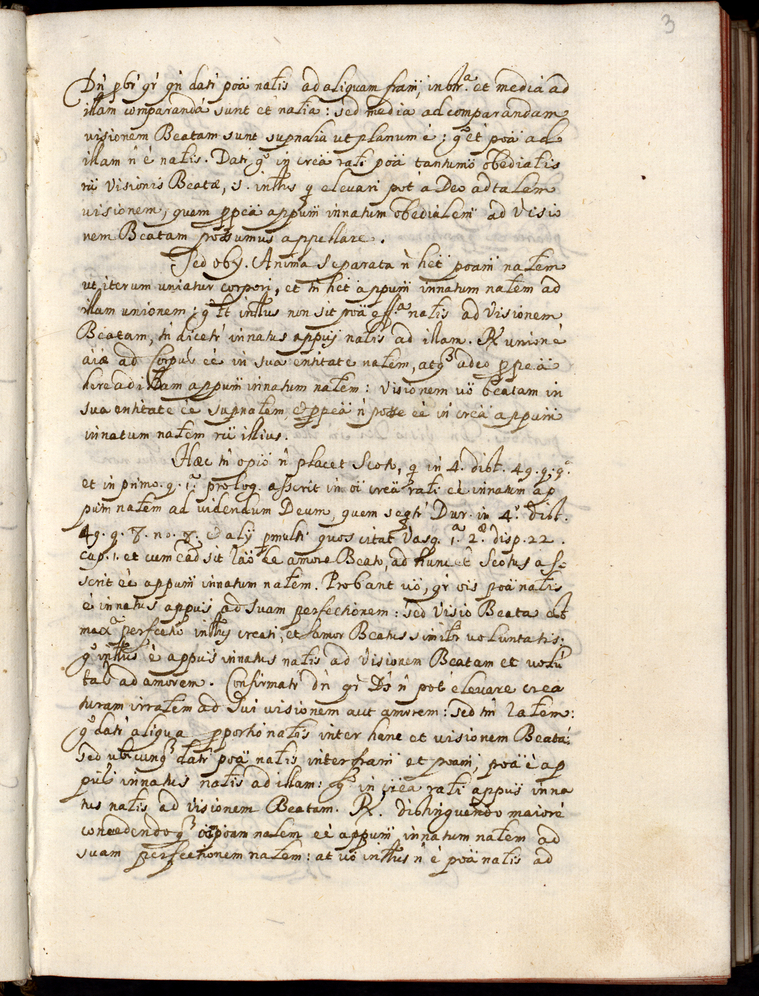 3
Dñ pbr̃ qr̃ qñ datr̃ poã nalis ad aliquam fram̃, in orͣ. et media ad
illam comparanda sunt et nalia: sed media ad comparandam
visionem Beatam sunt supnalia ut planum ẽ: gͦ et poã ad
illam ñ ẽ nalis. Datr̃ gͦ in creã rali poã tantumo obedialis
rũ Visionis Beatæ, .i. inttus q̃ elevari pot à Deo ad talem
visionem, quem ppeã appum̃ innatum obedialem̃ ad Visio
nem Beatam possumus appellare.
Sed obÿ. Anima separata ñ het poam̃ nalem
ut iterum uniatur corpori, et tñ het appum̃ innatum nalem ad
illam unionem: gͦ et inttus non sit poã natis ad Visionem
Beatam, tñ dicetr̃ innatus appus nalis ad illam. R̃ unionẽ
aiæ ad Corpus eẽ in sua entitate nalem, atq³ adeo ppeã
dere ad illam appum̃ innatum nalem: Visionem uõ beatam in
sua entitate eẽ supnalem, et ppeã ñ posse eẽ in creã appum̃
innatum nalem rũ illius.
Hæc tñ opiõ ñ placet Scoto, q̃ in 4. dist. 49. q. 9.
et in primo. q. 1. prolog. asserit in oĩ creã rali eẽ innatum ap
pum nalem ad videndum Deum, quem seqtr̃ Dur. in 4. dist.
49. q. 8. no. 7. et alÿ pmulti quos citat Vasq. 1. 2. disp. 22.
cap. 1. et cum eãd sit raõ de amore Beato, ad hunc etͥ Scotus asse
scrit eẽ appum̃ innatum nalem. Probant uõ, qr̃ ois poã nalis
ẽ innatus appus ad suam perfectionem: sed Visio Beata est
maxͣ perfectio inttus creati, et amor Beatus similr̃ voluntatis:
gͦ inttus ẽ appus innatus nalis ad Visionem Beatam et volũ
tas ad amorem. Confirmatr̃ dñ qr̃ Ds̃ ñ pot elevare crea
turam irralem ad sui visionem aut amorem: sed tñ ralem:
gͦ datr̃ aliqua pportio nalis inter hanc et visionem Beatã:
sed ubicunq³ datr̃ poã nalis inter fram̃ et poam̃, poã ẽ ap
pus innatus nalis ad illam: gͦ in creã rali appus inna
tus nalis ad visionem Beatam. R̃. distinguendo maiorẽ
concedendo q³ oem̃ poam nalem eẽ appum̃ innatum nalem ad
suam perfectionem nalem: at uõ inttus ñ ẽ poã nalis ad